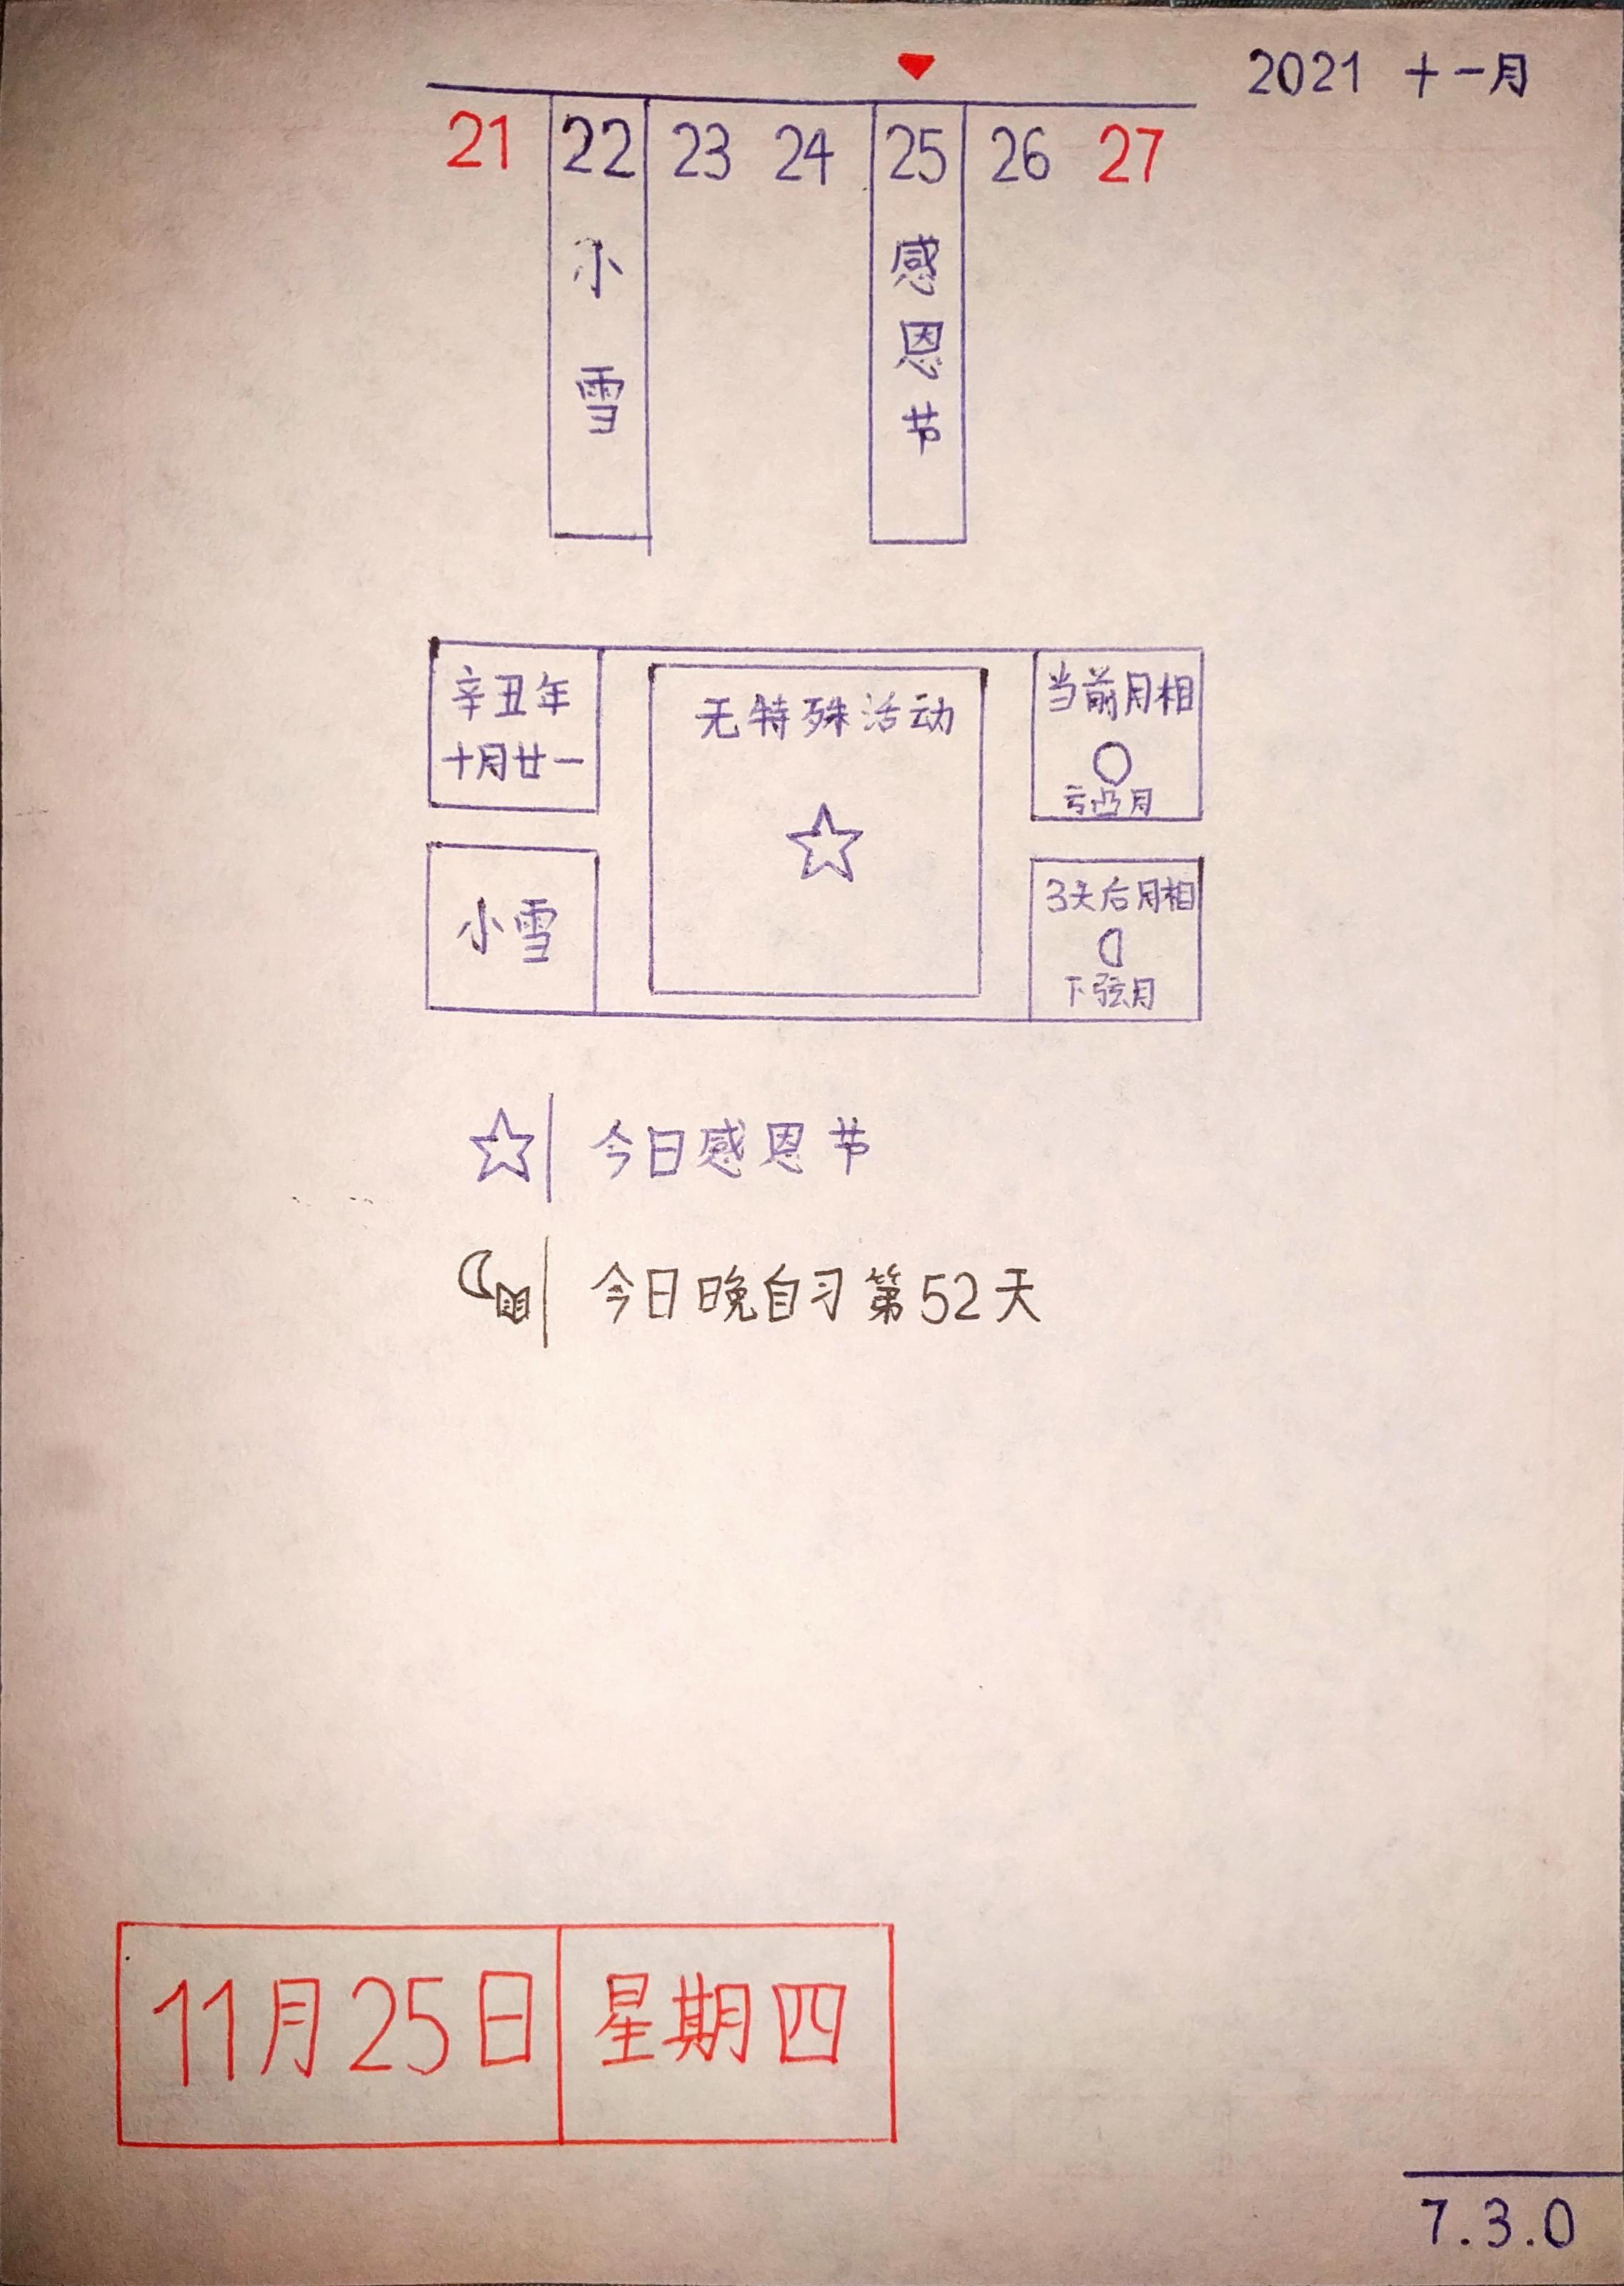 2021 十一月
21 22 23 24 25 26 27
小雪
感恩节
辛丑年
十月廿一
小雪
无特殊活动
当前月相
亏凸月
3天后月相
下弦月
今日感恩节
今日晚自习第52天
11月25日 星期四
7.3.0